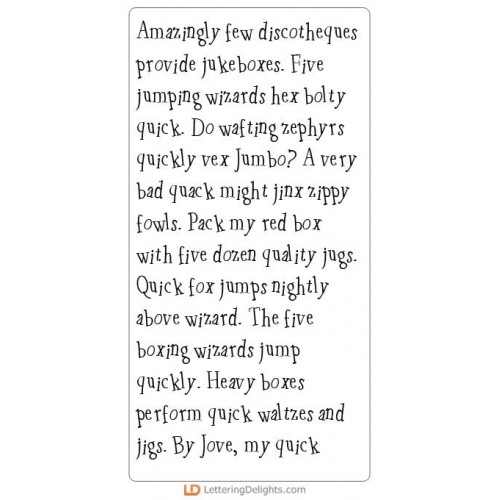 Amazingly few discotheques
provide jukeboxes. Five
jumping wizards hex bolty
quick. Do wafting zephyrs
quickly vex Jumbo? A very
bad quack might jinx zippy
fowls. Pack my red box
with five dozen quality jugs.
Quick fox jumps nightly
above wizard. The five
boxing wizards jump
quickly. Heavy boxes
perform quick waltzes and
jigs. By Jove, my quick
LD LetteringDelights.com